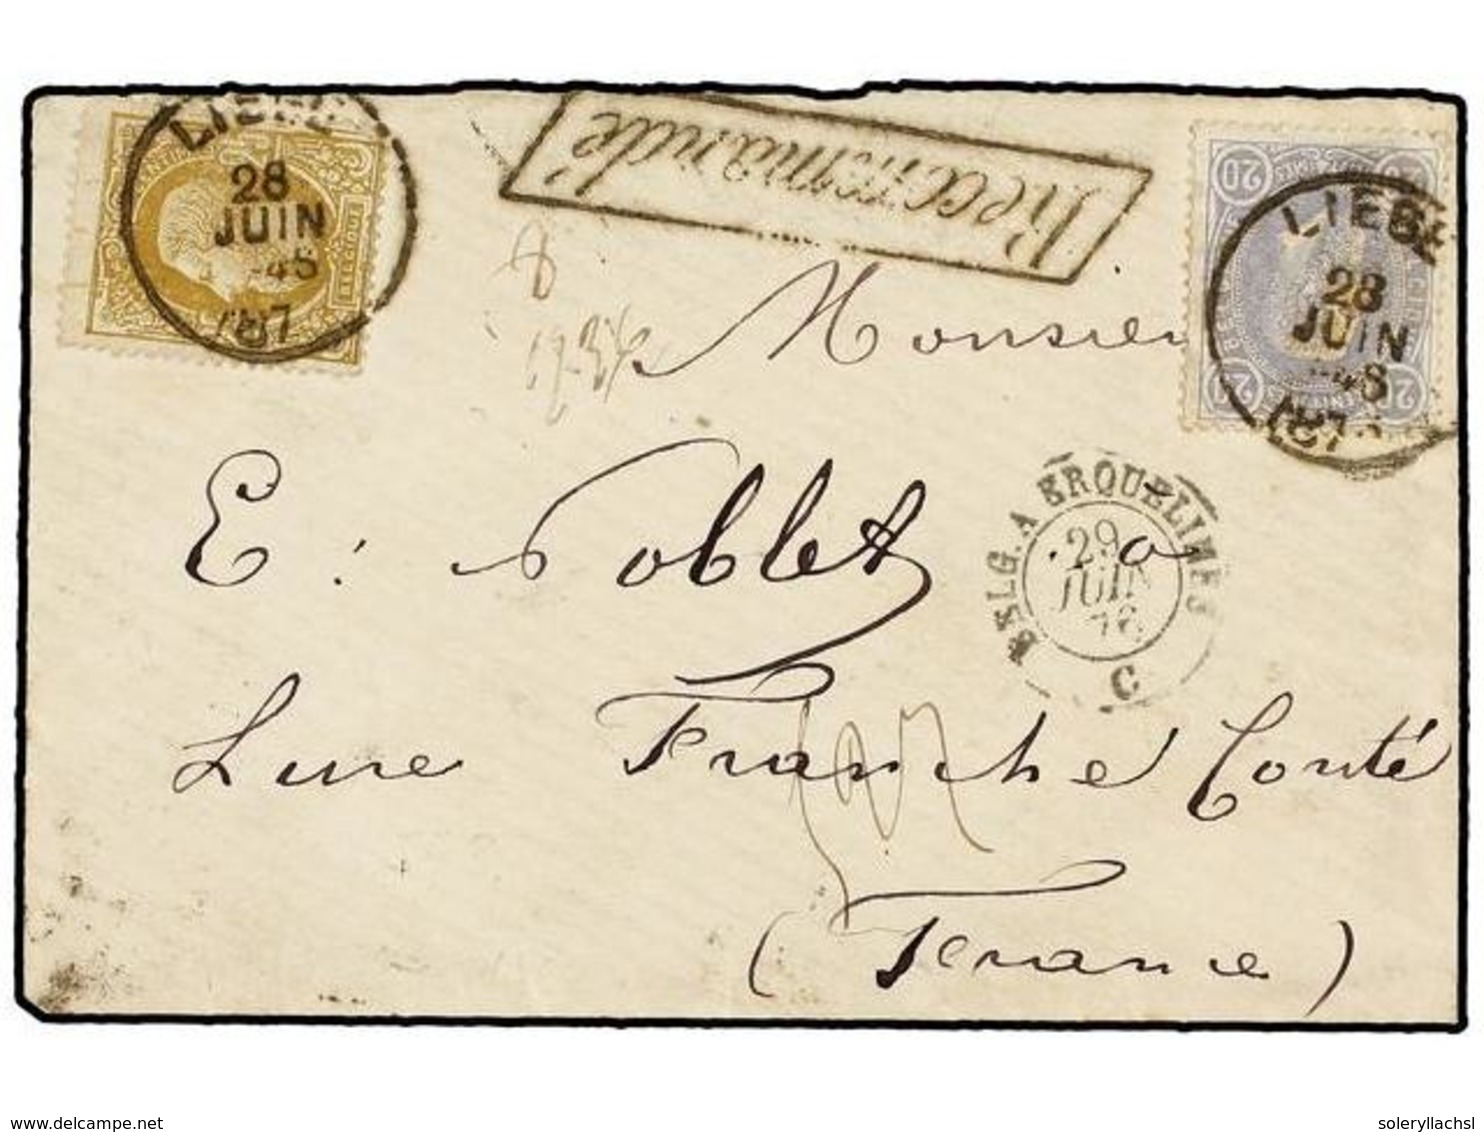 LIEGE
28
JUIN
187
BELGIQUE
Recommandé
20
LIEGE
28
JUIN
187
Monsieur
E : Noblet a
BELG. A ERQUELINES
29
JUIN
76
C
Lure Franche Conté
(France)
delcampe.net
soleryllachsl